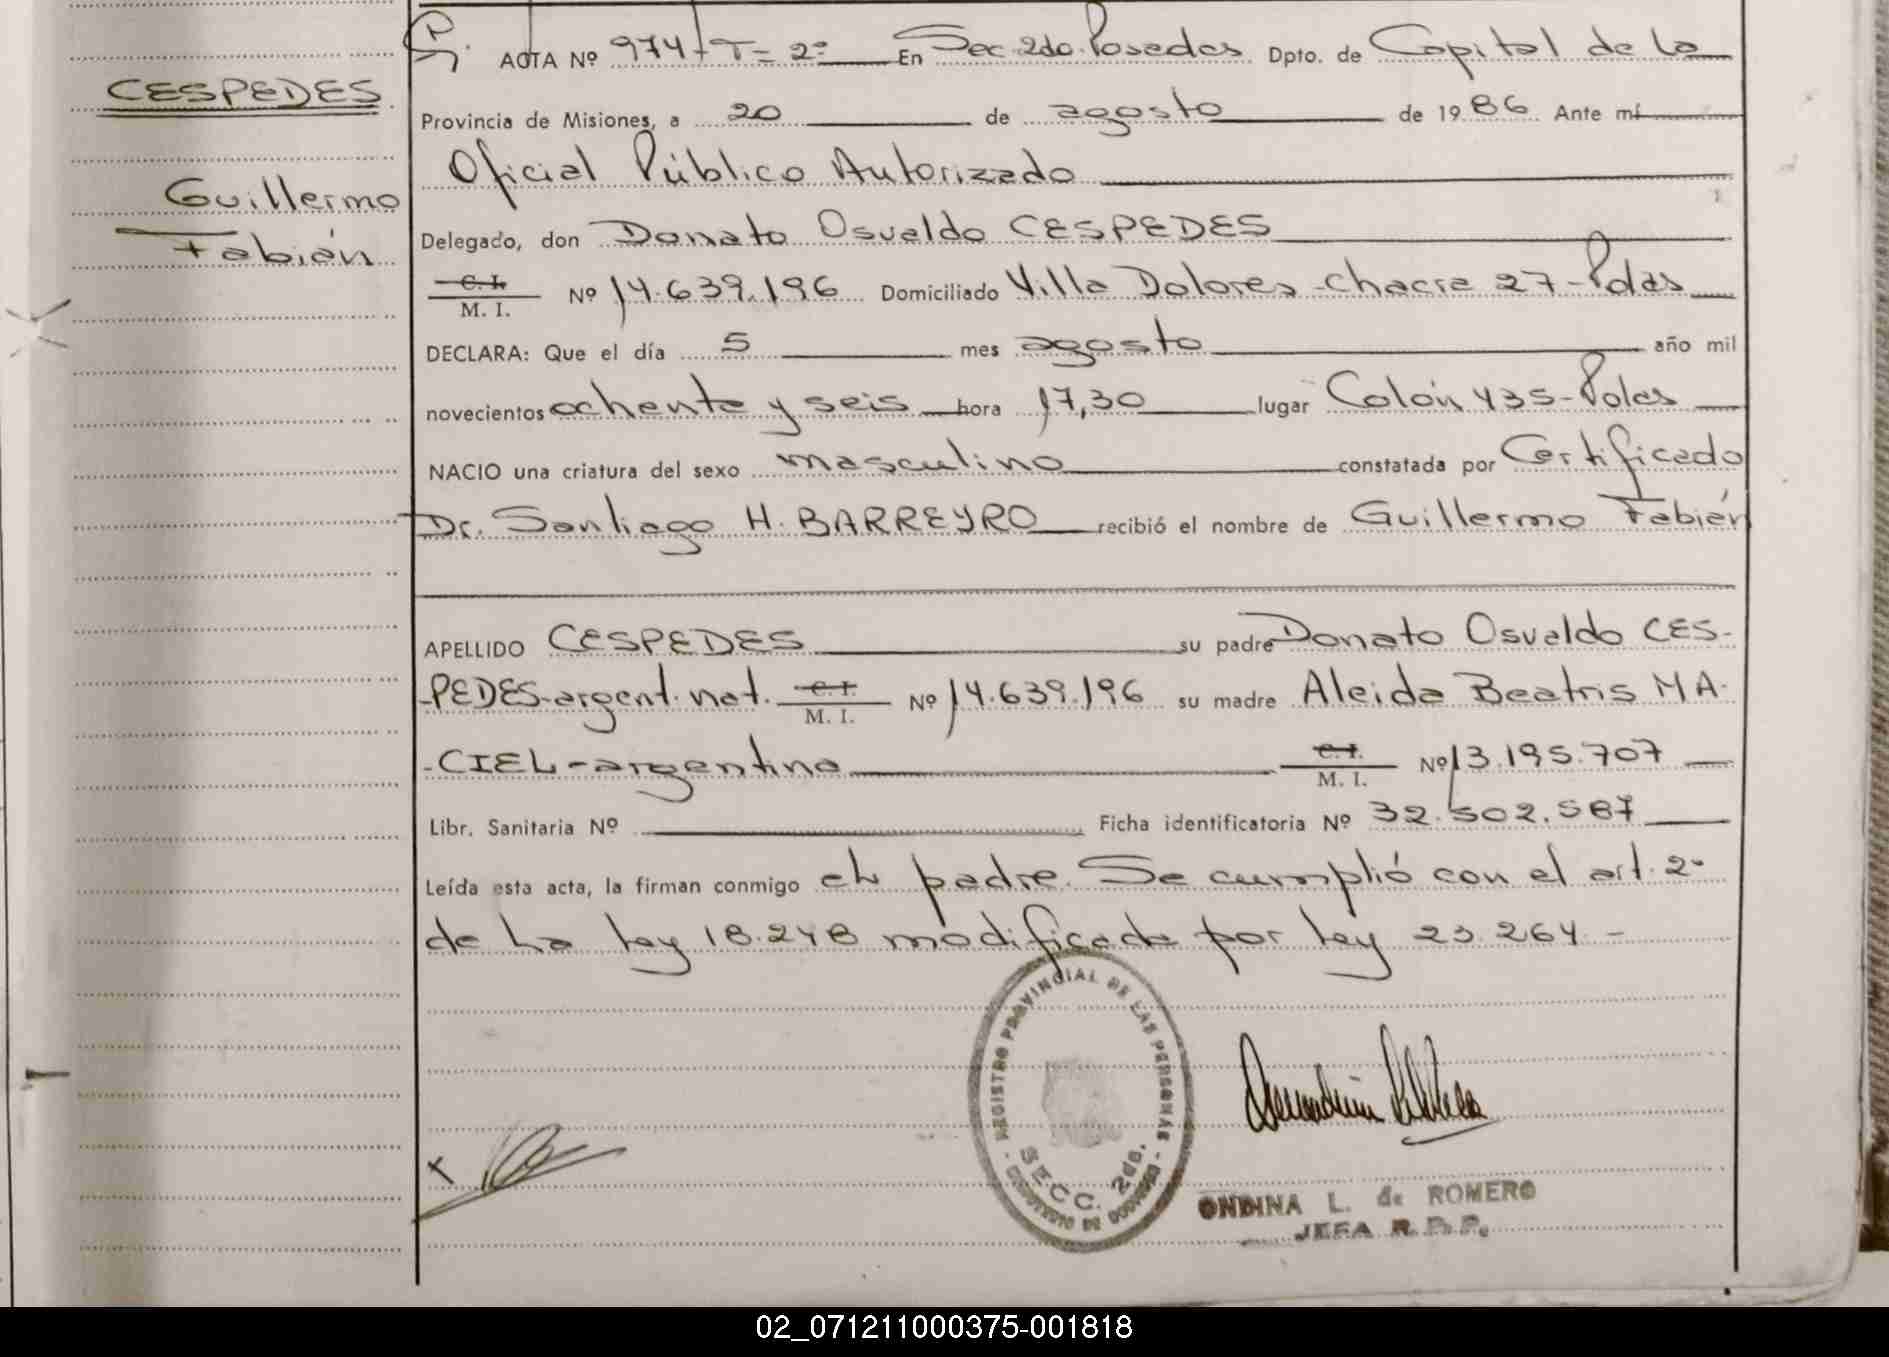 CESPEDES
Guillermo
Fabián
ACTA Nº 974 T = 2º En Sec. 2do. Posadas Dpto. de Capital de la
Provincia de Misiones, a 20 de agosto de 1986 Ante mí
Oficial Público Autorizado
Delegado, don Donato Osvaldo CESPEDES
C. I. / M. I. Nº 14.639.196 Domiciliado Villa Dolores - chacra 27 - Pdas
DECLARA: Que el día 5 mes agosto año mil
novecientos ochenta y seis hora 17,30 lugar Colón 435 - Pdas
NACIO una criatura del sexo masculino constatada por Certificado
Dr. Santiago H. BARREYRO recibió el nombre de Guillermo Fabián
APELLIDO CESPEDES su padre Donato Osvaldo CES-
-PEDES - argent. nat. C. I. / M. I. Nº 14.639.196 su madre Aleida Beatris MA-
-CIEL - argentina C. I. / M. I. Nº 13.195.707
Libr. Sanitaria Nº Ficha identificatoria Nº 32.502.587
Leída esta acta, la firman conmigo el padre. Se cumplió con el art. 2º
de la ley 18.248 modificada por ley 23.264 -
REGISTRO PROVINCIAL DE LAS PERSONAS
SECC. 2da.
ONDINA L. de ROMERO
JEFA R. P. P.
02_071211000375-001818